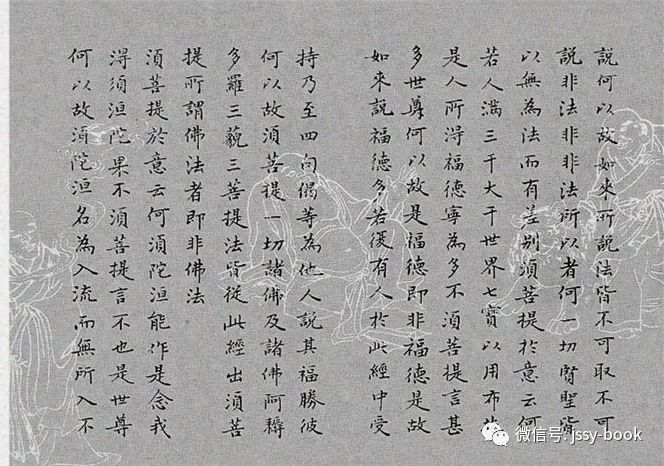 說何以故如來所說法皆不可取不可
說非法非非法所以者何一切賢聖皆
以無為法而有差别須菩提於意云何
若人滿三千大千世界七寶以用布施
是人所得福德寧為多不須菩提言甚
多世尊何以故是福德即非福德是故
如來說福德多若復有人於此經中受
持乃至四句偈等為他人說其福勝彼
何以故須菩提一切諸佛及諸佛阿耨
多羅三藐三菩提法皆從此經出須菩
提所謂佛法者即非佛法
須菩提於意云何須陀洹能作是念我
淂須洹陀果不須菩提言不也是世尊
何以故須陀洹名為入流而無所入不
微信号: jssy-book